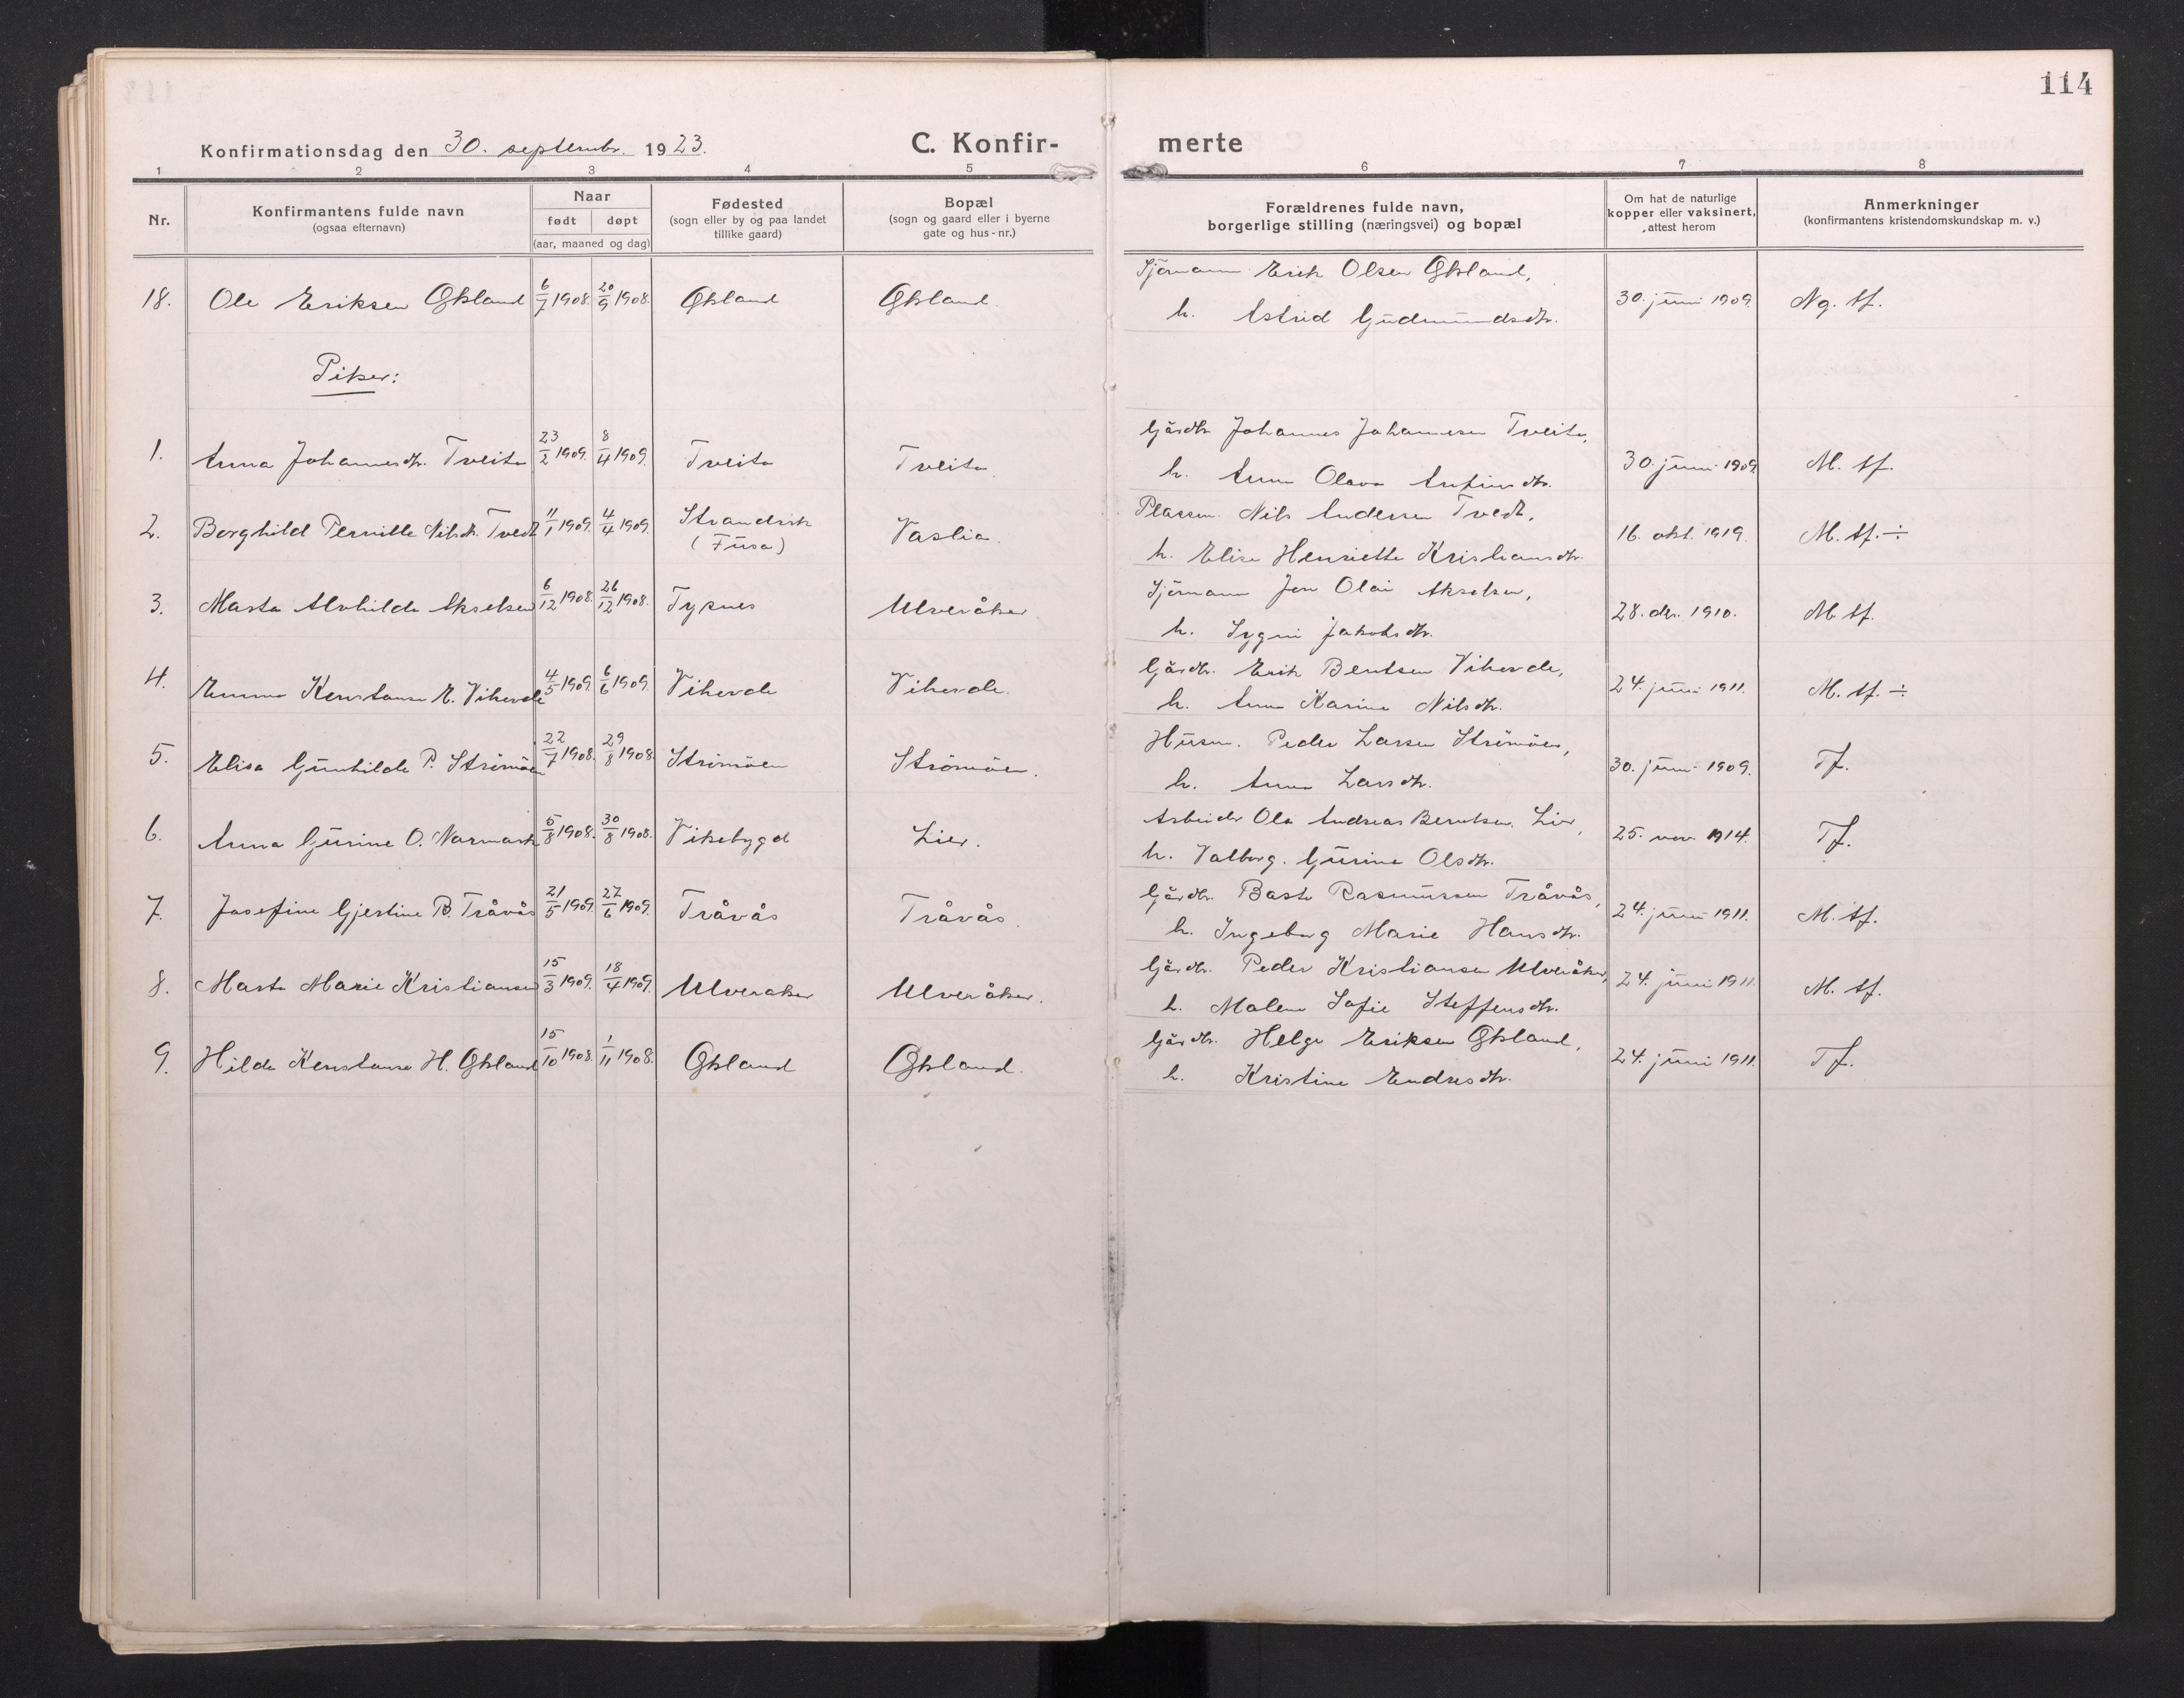 114
Konfirmationsdag den 30. septembr. 1923.
C. Konfir-
merte
1 2 3 4 5 6 7 8
Nr.
Konfirmantens fulde navn
(ogsaa efternavn)
Naar
født døpt
(aar, maaned og dag)
Fødested
(sogn eller by og paa landet
tillike gaard)
Bopæl
(sogn og gaard eller i byerne
gate og hus-nr.)
Forældrenes fulde navn,
borgerlige stilling (næringsvei) og bopæl
Om hat de naturlige
kopper eller vaksinert,
attest herom
Anmerkninger
(konfirmantens kristendomskundskap m. v.)
Sjømann Erik Olsen Økland,
18. Ole Eriksen Økland 6/7 1908. 20/9 1908. Økland Økland. 30. juni 1909 Ng. tf.
h. Astrid Gudmundsdtr.
Piker:
Gårdbr. Johannes Johannesen Tveita,
1. Anna Johannesdtr. Tveita 23/2 1909. 8/4 1909. Tveita Tveita. 30. juni 1909 M. tf.
h. Anna Olava Anfinsdtr.
Plassm. Nils Andersen Tvedt,
2. Borghild Pernille Nilsdtr. Tvedt 11/1 1909. 4/4 1909. Strandvik
(Fusa) Vaslia. 16. okt. 1919. M. tf. ÷
h. Elise Henriette Kristiansdtr.
Sjömann Jon Olai Akselsen,
3. Marta Alvhilda Akselsen 6/12 1908. 26/12 1908. Tysnes Ulveråker 28. ds. 1910. M tf.
h. Sygni Jakobsdtr.
Gårdbr. Erik Bentsen Vihovde,
4. Emma Konstanse E. Vihovde 4/5 1909. 6/6 1909. Vihovde Vihovde. 24. juni 1911. M. tf. ÷
h. Anna Karina Nilsdtr.
Husm. Peder Larsen Strömöen,
5. Elisa Gunhilde P. Strömöen 22/7 1908. 29/8 1908. Strömöen Strömöen. 30. juni 1909. Tf.
h. Anna Larsdtr.
Arbeider Ola Andreas Berntsen Lier,
6. Anna Gurine O. Narmark 5/8 1908. 30/8 1908. Vikebygd Lier. 25. nov. 1914. Tf.
h. Valborg. Gurine Olsdtr.
Gårdbr. Baste Rasmussen Tråvås,
7. Josefine Gjertine B. Tråvås 21/5 1909. 27/6 1909. Tråvås Tråvås. 24. juni 1911. M. tf.
h. Ingeborg Marie Hansdtr.
Gårdbr. Peder Kristiansen Ulveråker,
8. Marta Marie Kristiansen 15/3 1909. 18/4 1909. Ulveraker Ulveråker. 24. juni 1911. M. tf.
h. Malene Sofie Steffensdtr.
Gårdbr. Helge Eriksen Økland,
9. Hilda Konstanse H. Økland 15/10 1908. 1/11 1908. Økland Økland. 24. juni 1911. Tf.
h. Kristine Endresdtr.